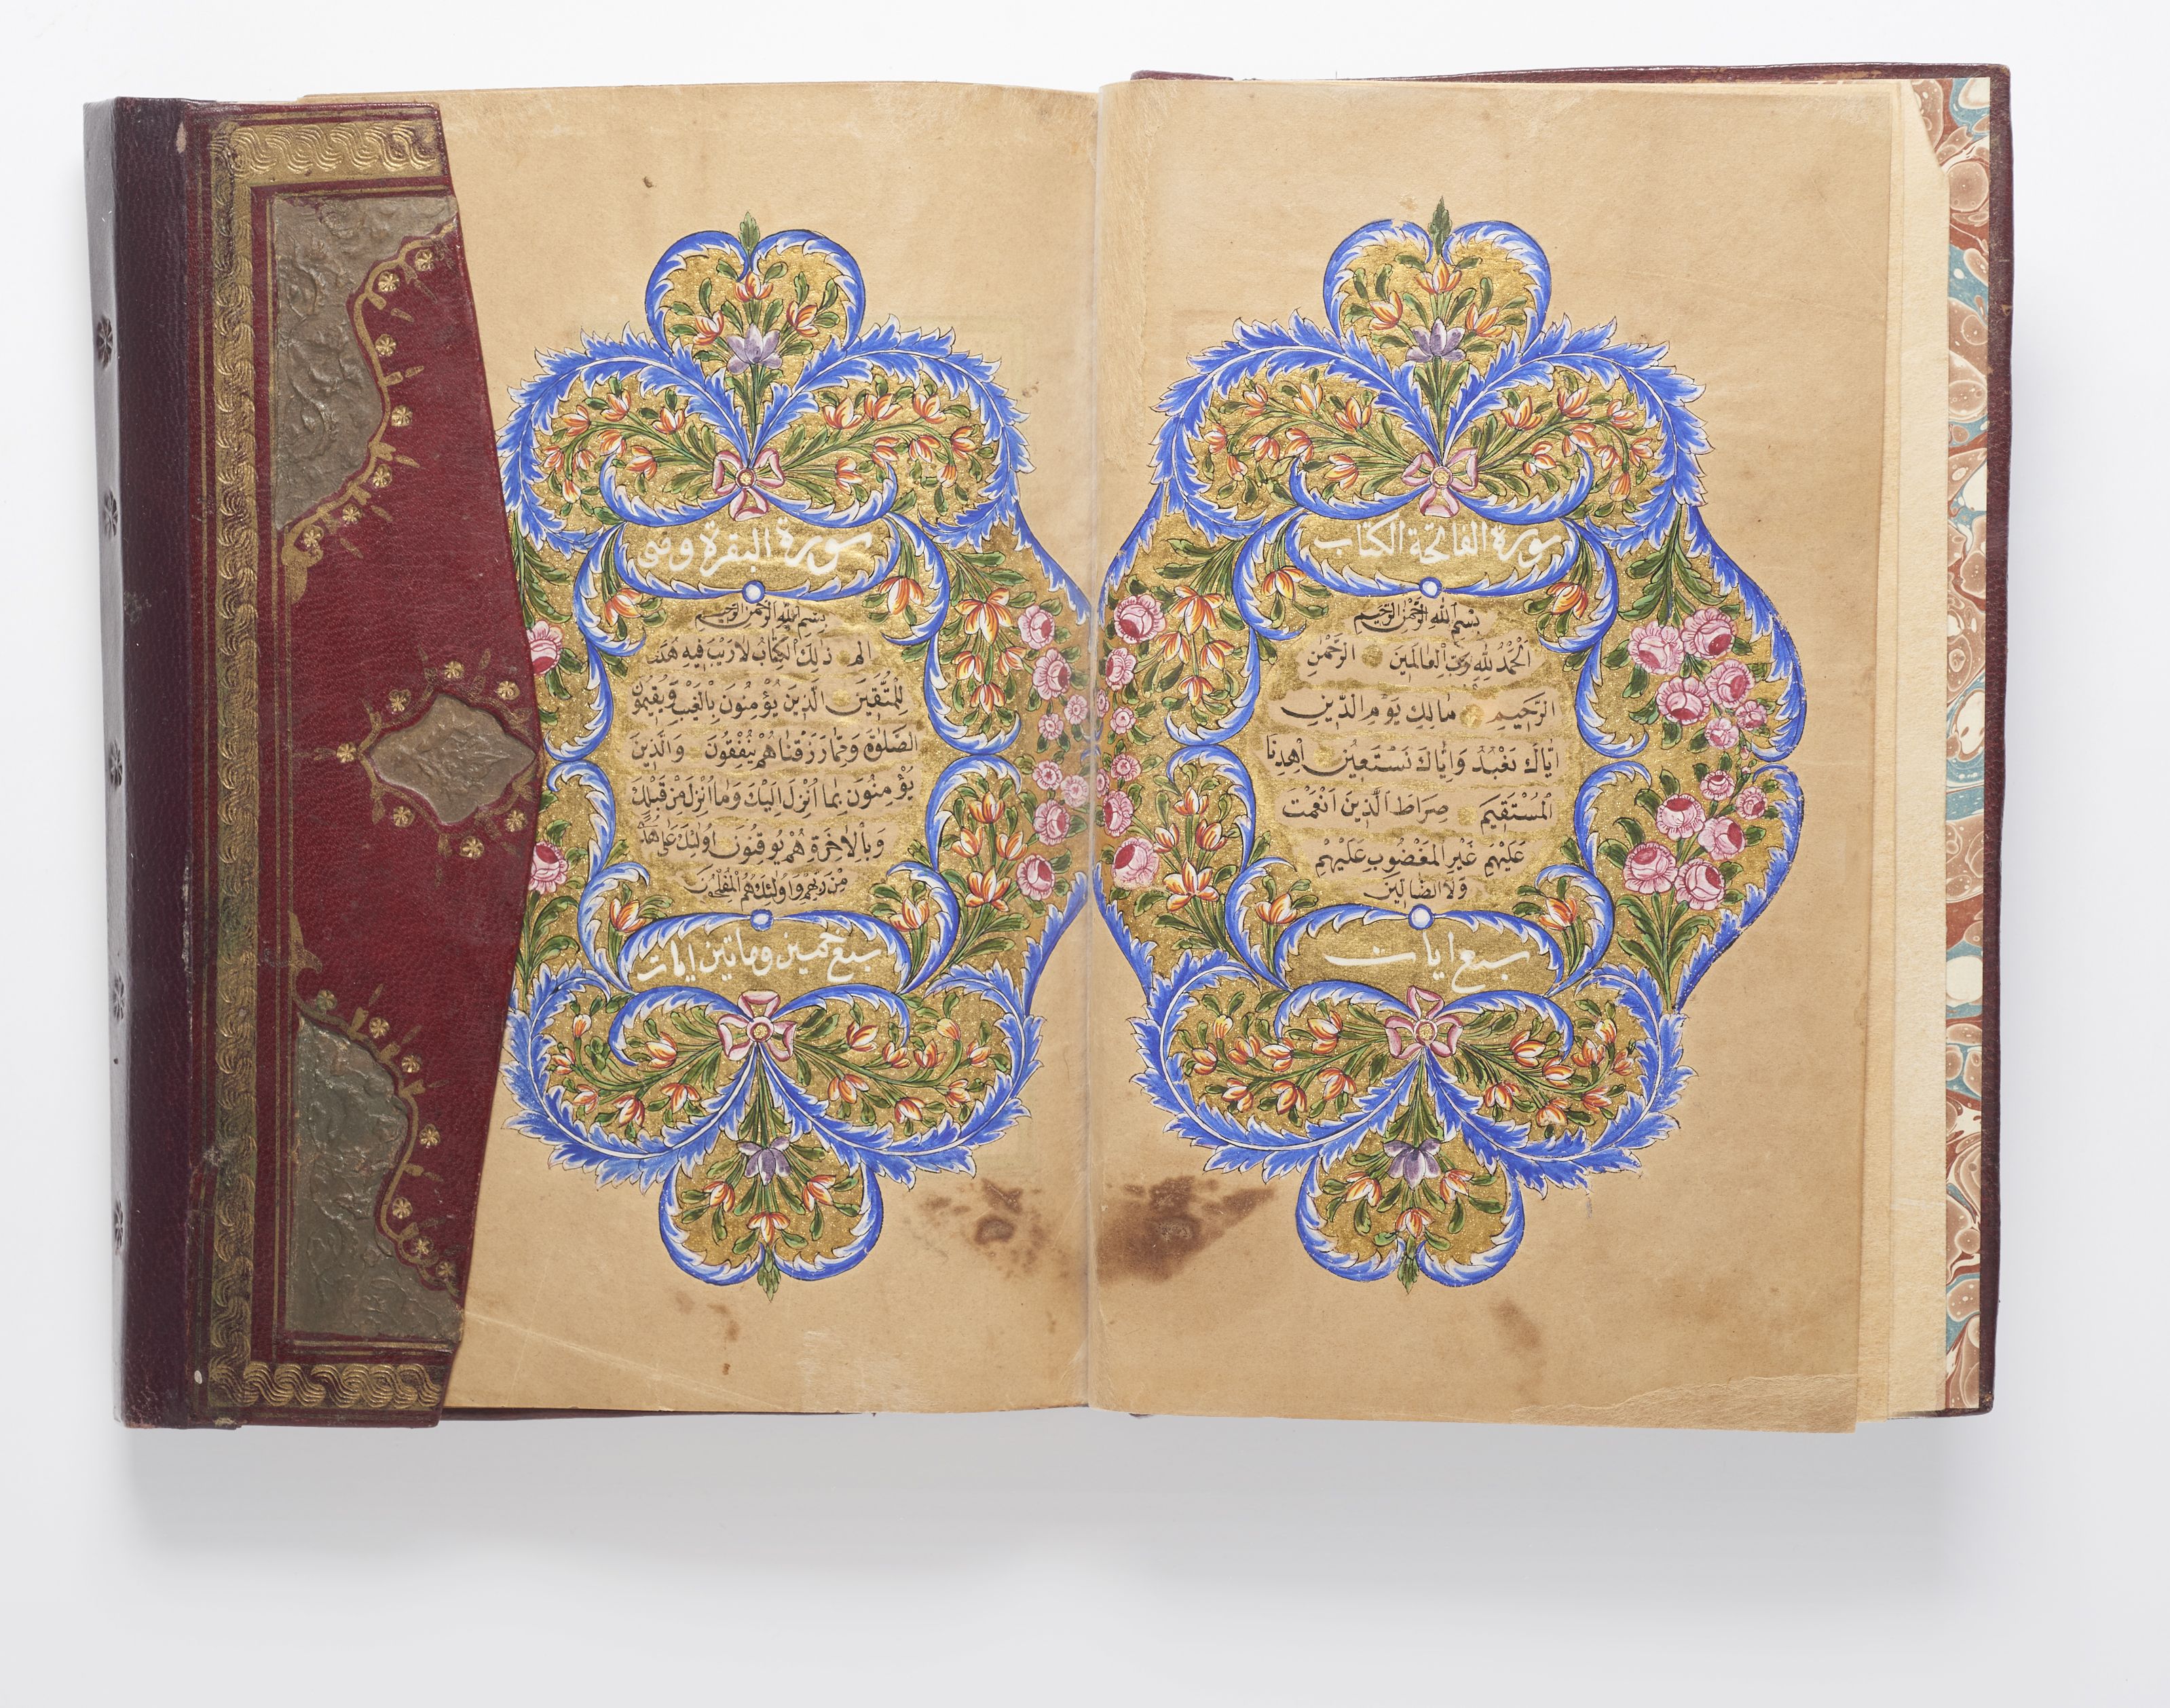 سورة الفاتحة الكتاب
بسم الله الرحمن الرحيم
اَلْحَمْدُ لِلّٰهِ رَبِّ الْعَالَمِينَ الرَّحْمٰنِ
الرَّحِيمِ مَالِكِ يَوْمِ الدِّينِ
اِيَّاكَ نَعْبُدُ وَاِيَّاكَ نَسْتَعِينُ اِهْدِنَا
الْمُسْتَقِيمَ صِرَاطَ الَّذِينَ اَنْعَمْتَ
عَلَيْهِمْ غَيْرِ الْمَغْضُوبِ عَلَيْهِمْ
وَلَا الضَّالِّينَ
سبع ايات
سورة البقرة وهى
بسم الله الرحمن الرحيم
الم ذٰلِكَ الْكِتَابُ لَا رَيْبَ فِيهِ هُدًى
لِلْمُتَّقِينَ اَلَّذِينَ يُؤْمِنُونَ بِالْغَيْبِ وَيُقِيمُونَ
الصَّلٰوةَ وَمِمَّا رَزَقْنَاهُمْ يُنْفِقُونَ وَالَّذِينَ
يُؤْمِنُونَ بِمَا اُنْزِلَ اِلَيْكَ وَمَا اُنْزِلَ مِنْ قَبْلِكَ
وَبِالْاٰخِرَةِ هُمْ يُوقِنُونَ اُولٰئِكَ عَلٰى هُدًى
مِنْ رَبِّهِمْ وَاُولٰئِكَ هُمُ الْمُفْلِحُونَ
سبع خمسين وماتين ايات